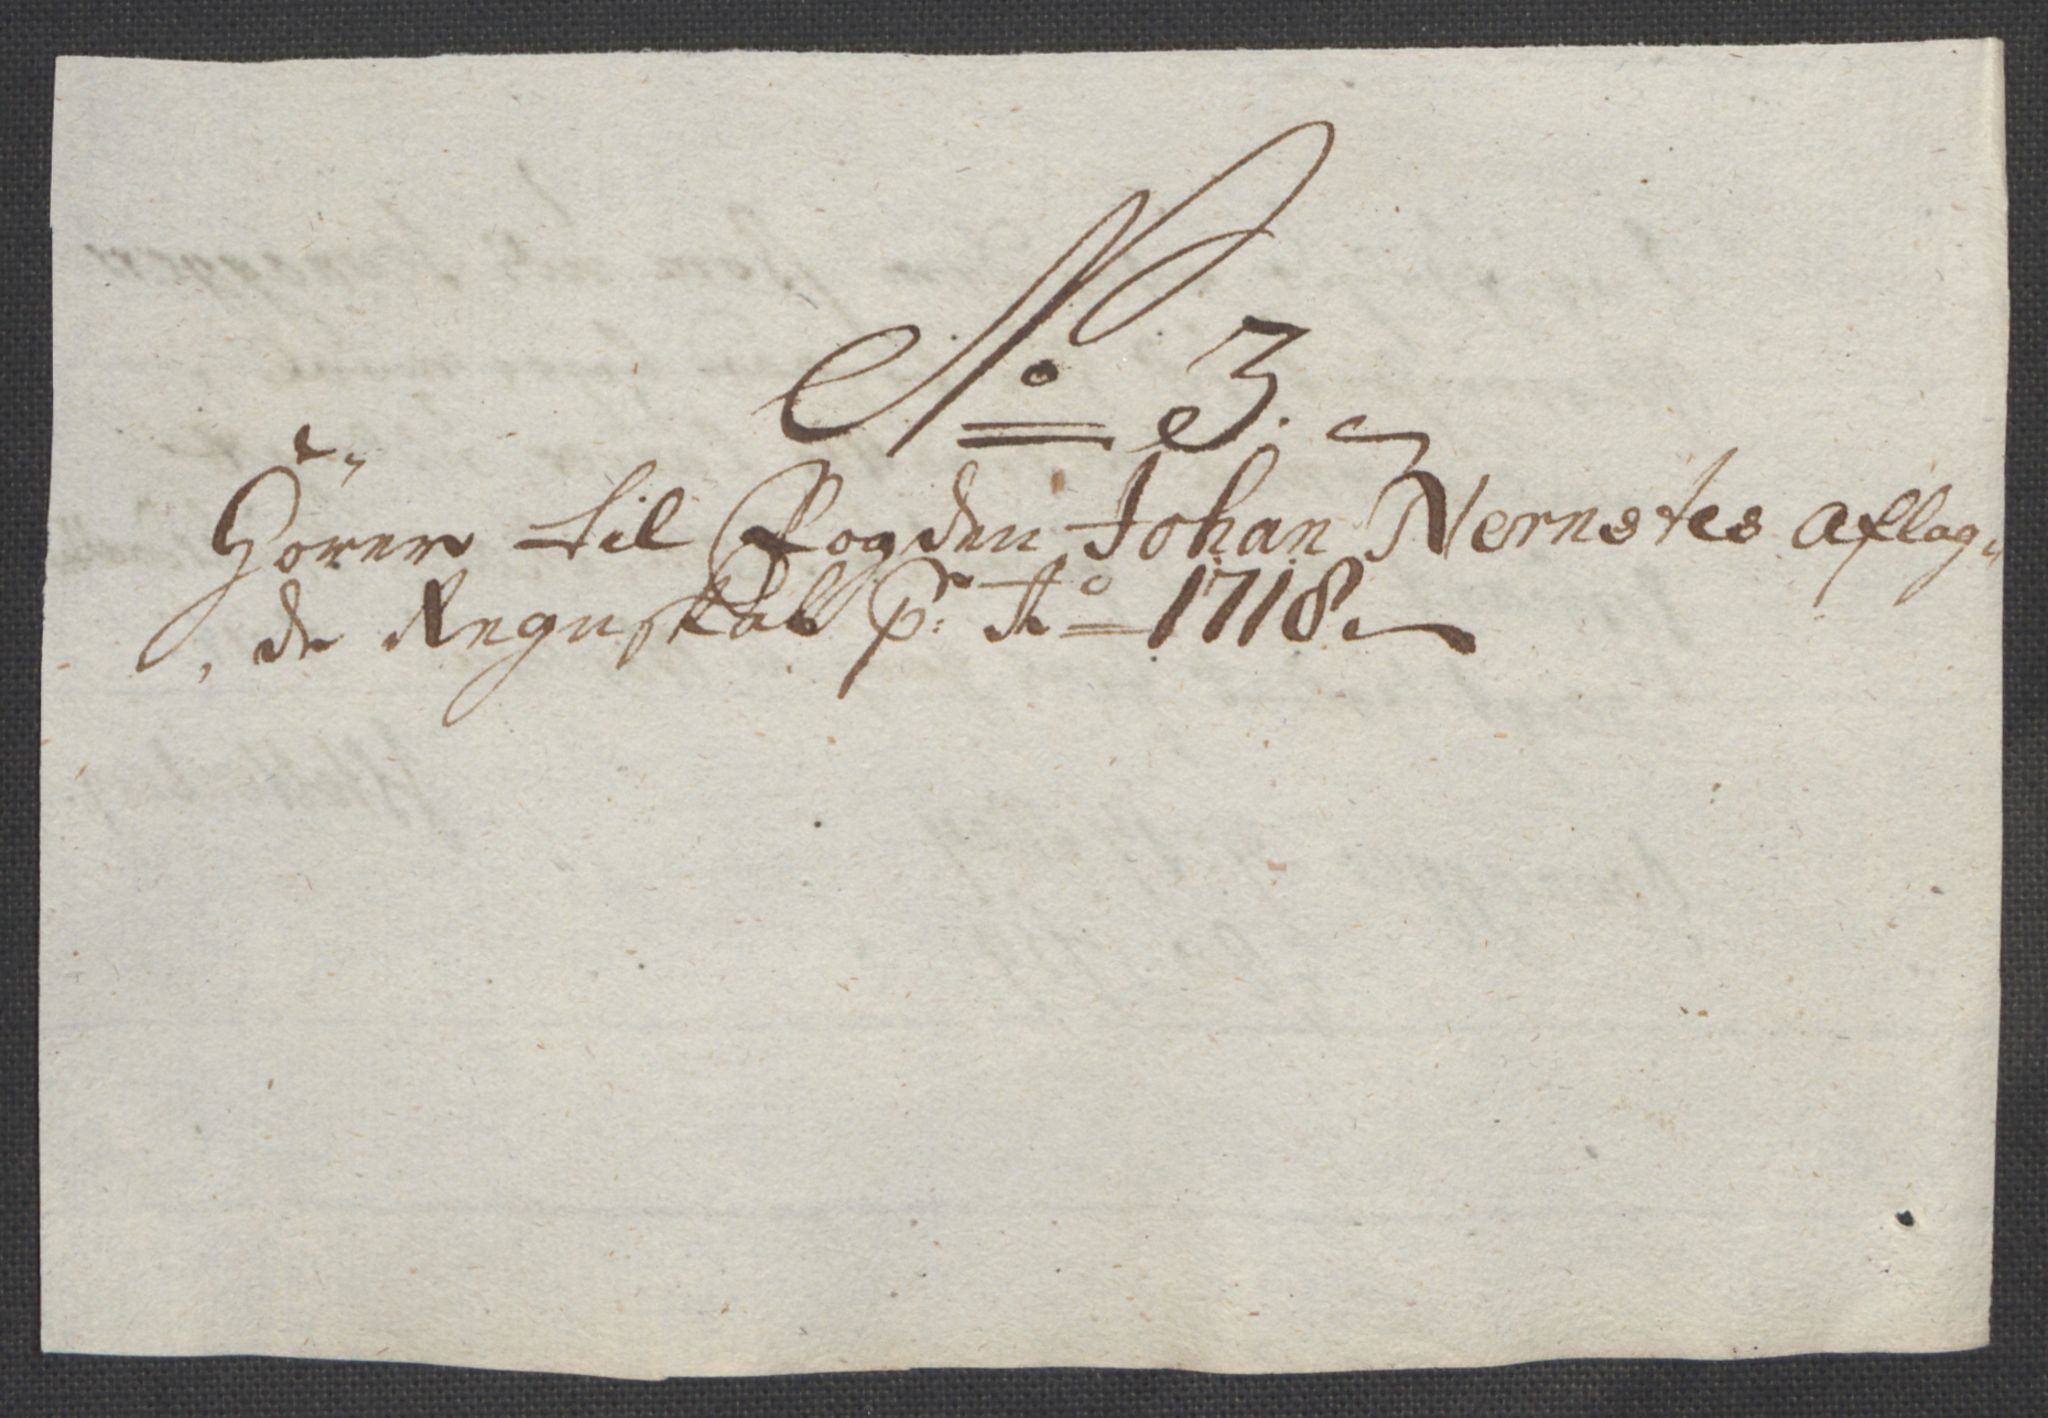 No 3.
Hörer til Fogden Johan Nernstes aflag„
de Regnskab pr. Ao 1718.